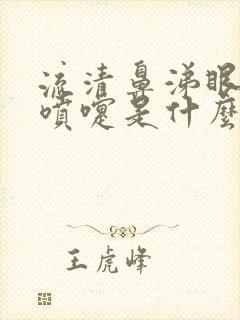 流清鼻涕眼
噴嚏是什麼
王虎峰